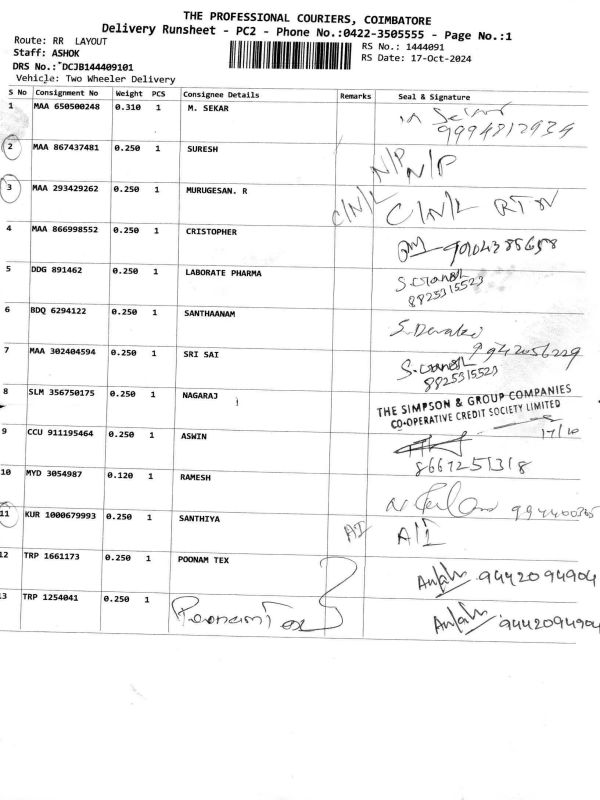 THE PROFESSIONAL COURIERS, COIMBATORE
Delivery Runsheet - PC2 - Phone No.:0422-3505555 - Page No.:1
Route: RR LAYOUT
RS No.: 1444091
Staff: ASHOK
RS Date: 17-Oct-2024
DRS No.: DCJB144409101
Vehicle: Two Wheeler Delivery
S No Consignment No Weight PCS Consignee Details Remarks Seal & Signature
1 MAA 650500248 0.310 1 M. SEKAR
9994812934
2 MAA 867437481 0.250 1 SURESH N/P N/P
3 MAA 293429262 0.250 1 MURUGESAN. R C/N/L C/N/L RTN
4 MAA 866998552 0.250 1 CRISTOPHER
5 DDG 891462 0.250 1 LABORATE PHARMA
8825315523
6 BDQ 6294122 0.250 1 SANTHAANAM S. Devaki
9942056229
7 MAA 302404594 0.250 1 SRI SAI
8825315523
8 SLM 356750175 0.250 1 NAGARAJ THE SIMPSON & GROUP COMPANIES
CO-OPERATIVE CREDIT SOCIETY LIMITED
17/10
9 CCU 911195464 0.250 1 ASWIN
8667251318
10 MYD 3054987 0.120 1 RAMESH
11 KUR 1000679993 0.250 1 SANTHIYA AI A/I
12 TRP 1661173 0.250 1 POONAM TEX 9442094904
13 TRP 1254041 0.250 1 Poonam Tex 9442094904